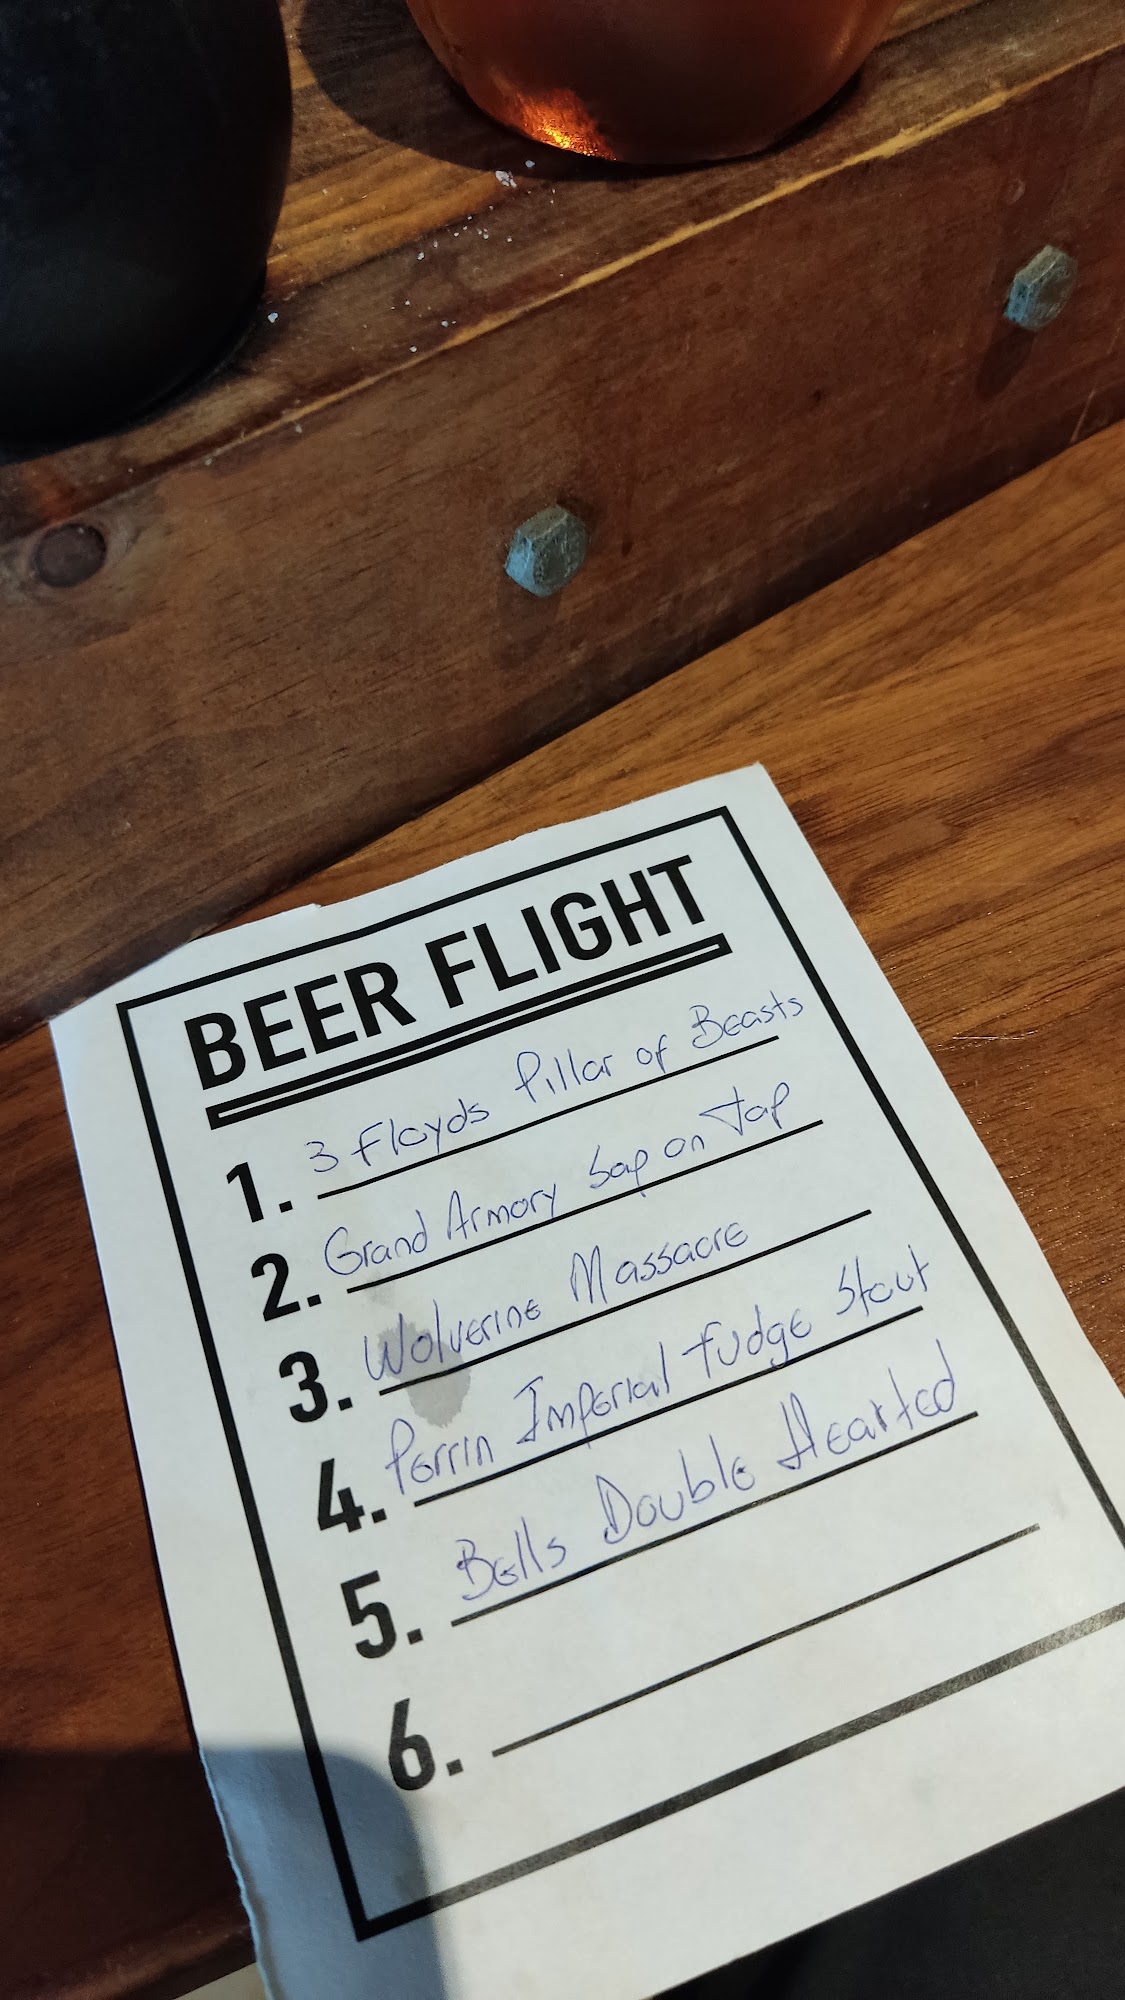 BEER FLIGHT
1. 3 Floyds Pillar of Beasts
2. Grand Armory Sap on Tap
3. Wolverine Massacre
4. Perrin Imperial Fudge Stout
5. Bells Double Hearted
6.